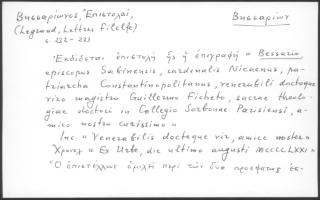 Βησσαρίωνος, Ἐπιστολαί,
(Legrand, Lettres Filelfe)
σ. 232-233
Βησσαρίων
Ἐκδίδεται ἐπιστολὴ ἧς ἡ ἐπιγραφή « Bessario
episcopus Sabinensis, cardinalis Nicaenus, pa-
triarcha Constantinopolitanus, venerabili doctoque
viro magistro Guillermo Ficheto, sacrae theolo-
giae doctori in Collegio Sorbonae Parisiensi, a-
mico nostro carissimo »
Inc. « Venerabilis doctoque vir, amice noster »
Χρονολ « Ex Urbe, die ultimo augusti MCCCCLXXI »
Ὁ ἐπιστέλλων ὁμιλεῖ περὶ τῶν δύο προσφάτως ἐκ-